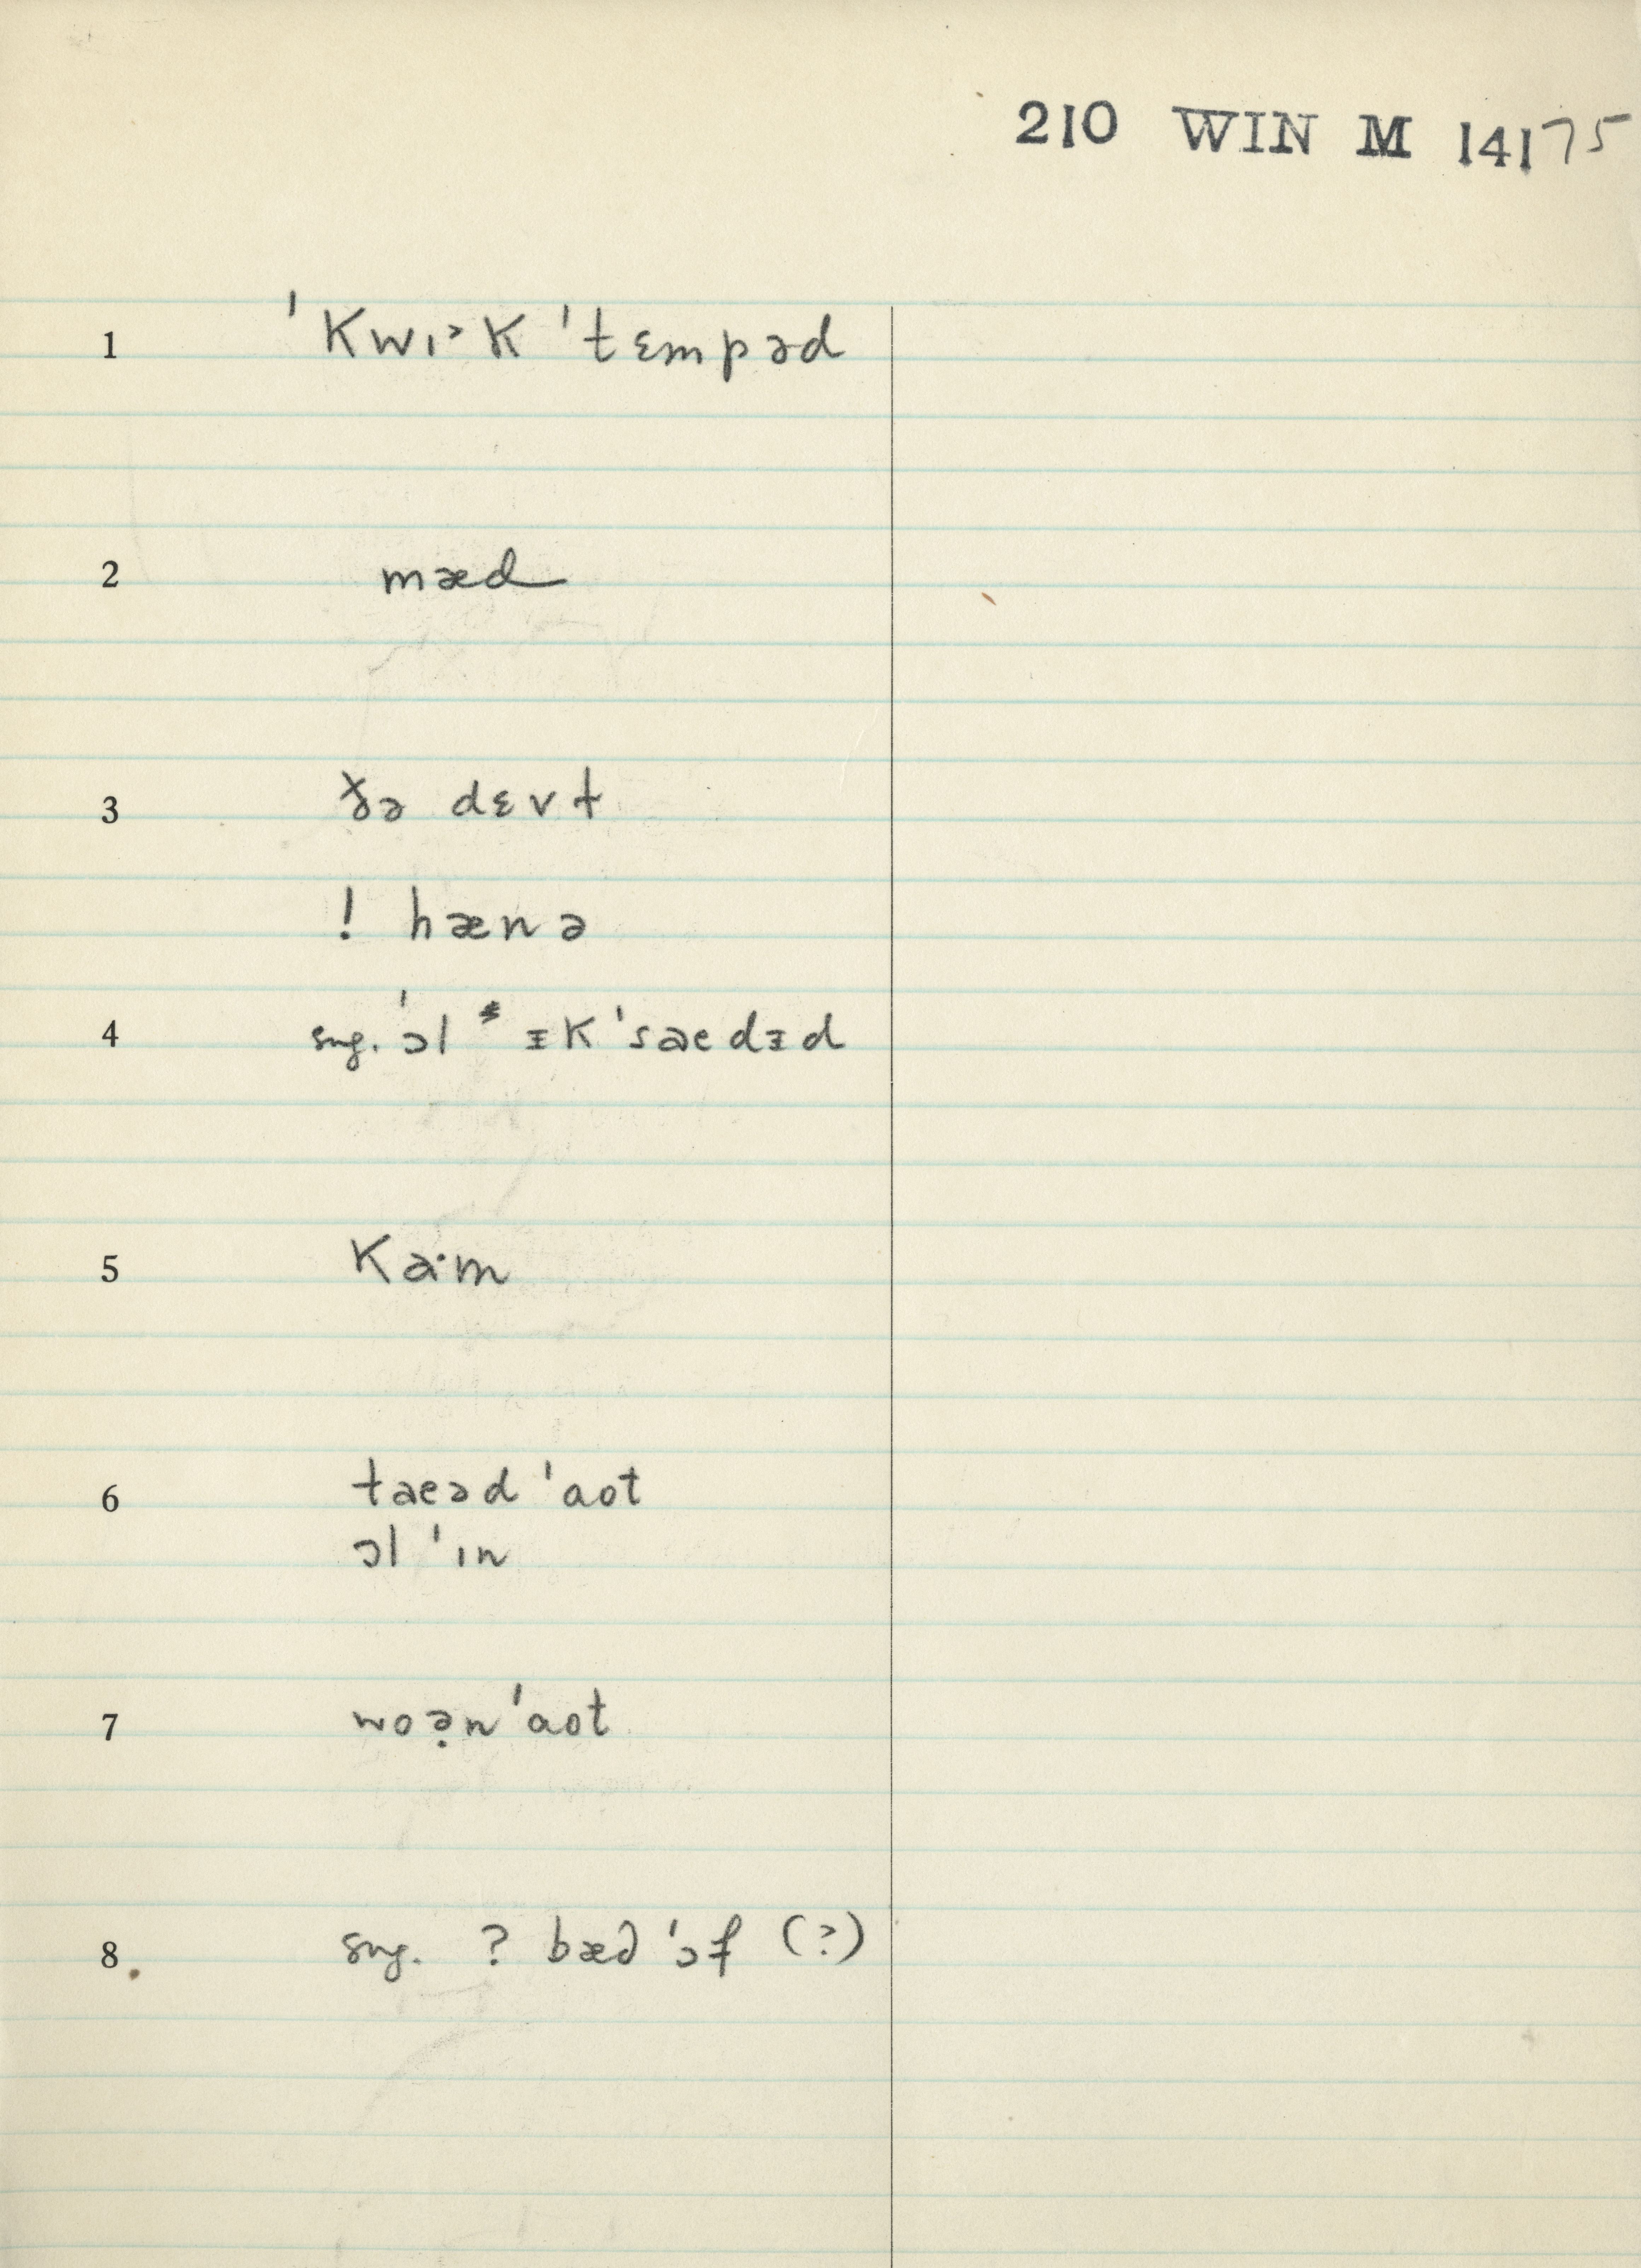 210 WIN M 14175
1 ˈkwɪ˃k ˈtɛmpəd
2 mæd
3 ðə dɛvɫ
! hænə
4 sug. ˈɔl * ᵻk ˈsaedᵻd
5 ka·m
6 taeəd ˈaot
ɔl ˈɪn
7 woə̣n ˈaot
8 sug. ? bæd ˈɔf (?)